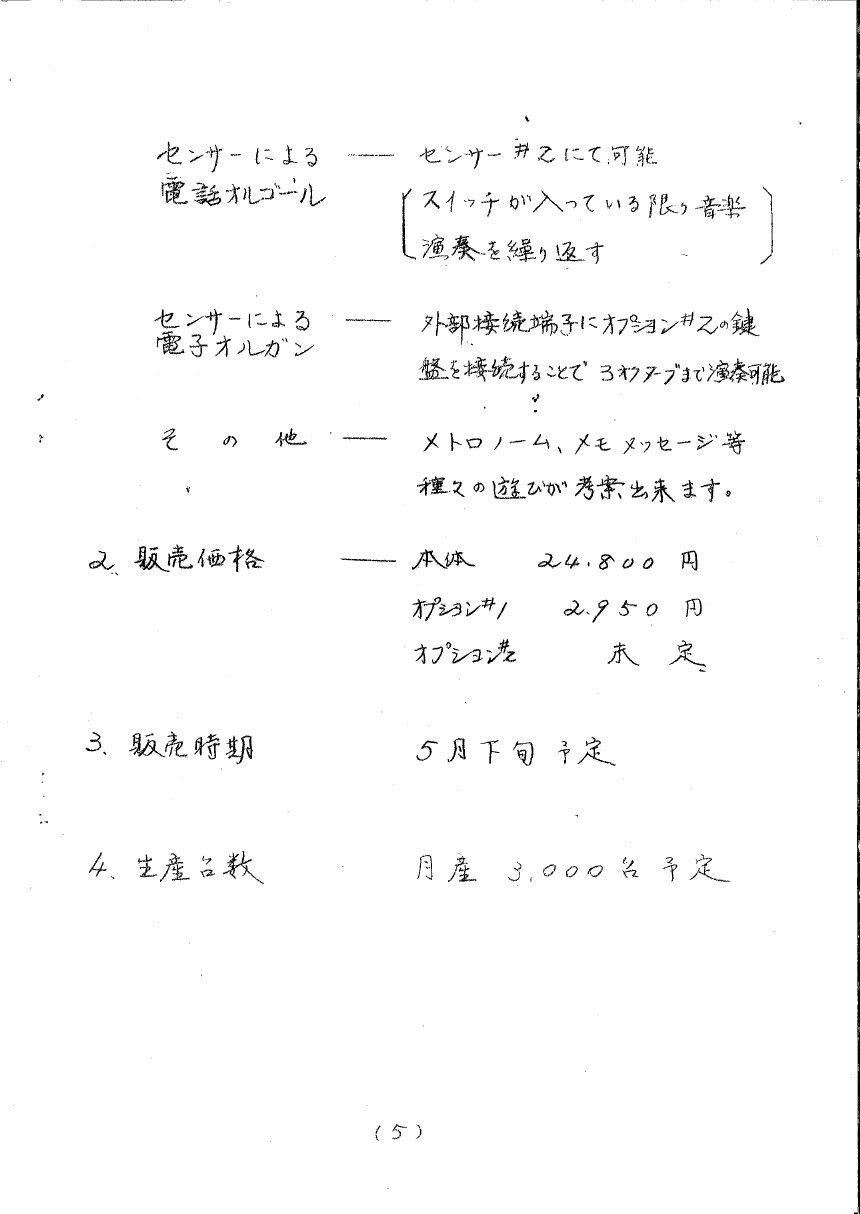 センサーによる ── センサー#2にて可能
電話オルゴール
スイッチが入っている限り音楽
演奏を繰り返す
センサーによる ── 外部接続端子にオプション#2の鍵
電子オルガン
盤を接続することで 3オクターブまで演奏可能
その他 ── メトロノーム、メモメッセージ等
種々の遊びが考案出来ます。
2. 販売価格 ── 本体 24.800円
オプション#1 2.950円
オプション#2 未定
3. 販売時期 5月下旬予定
4. 生産台数 月産 3,000台予定
(5)